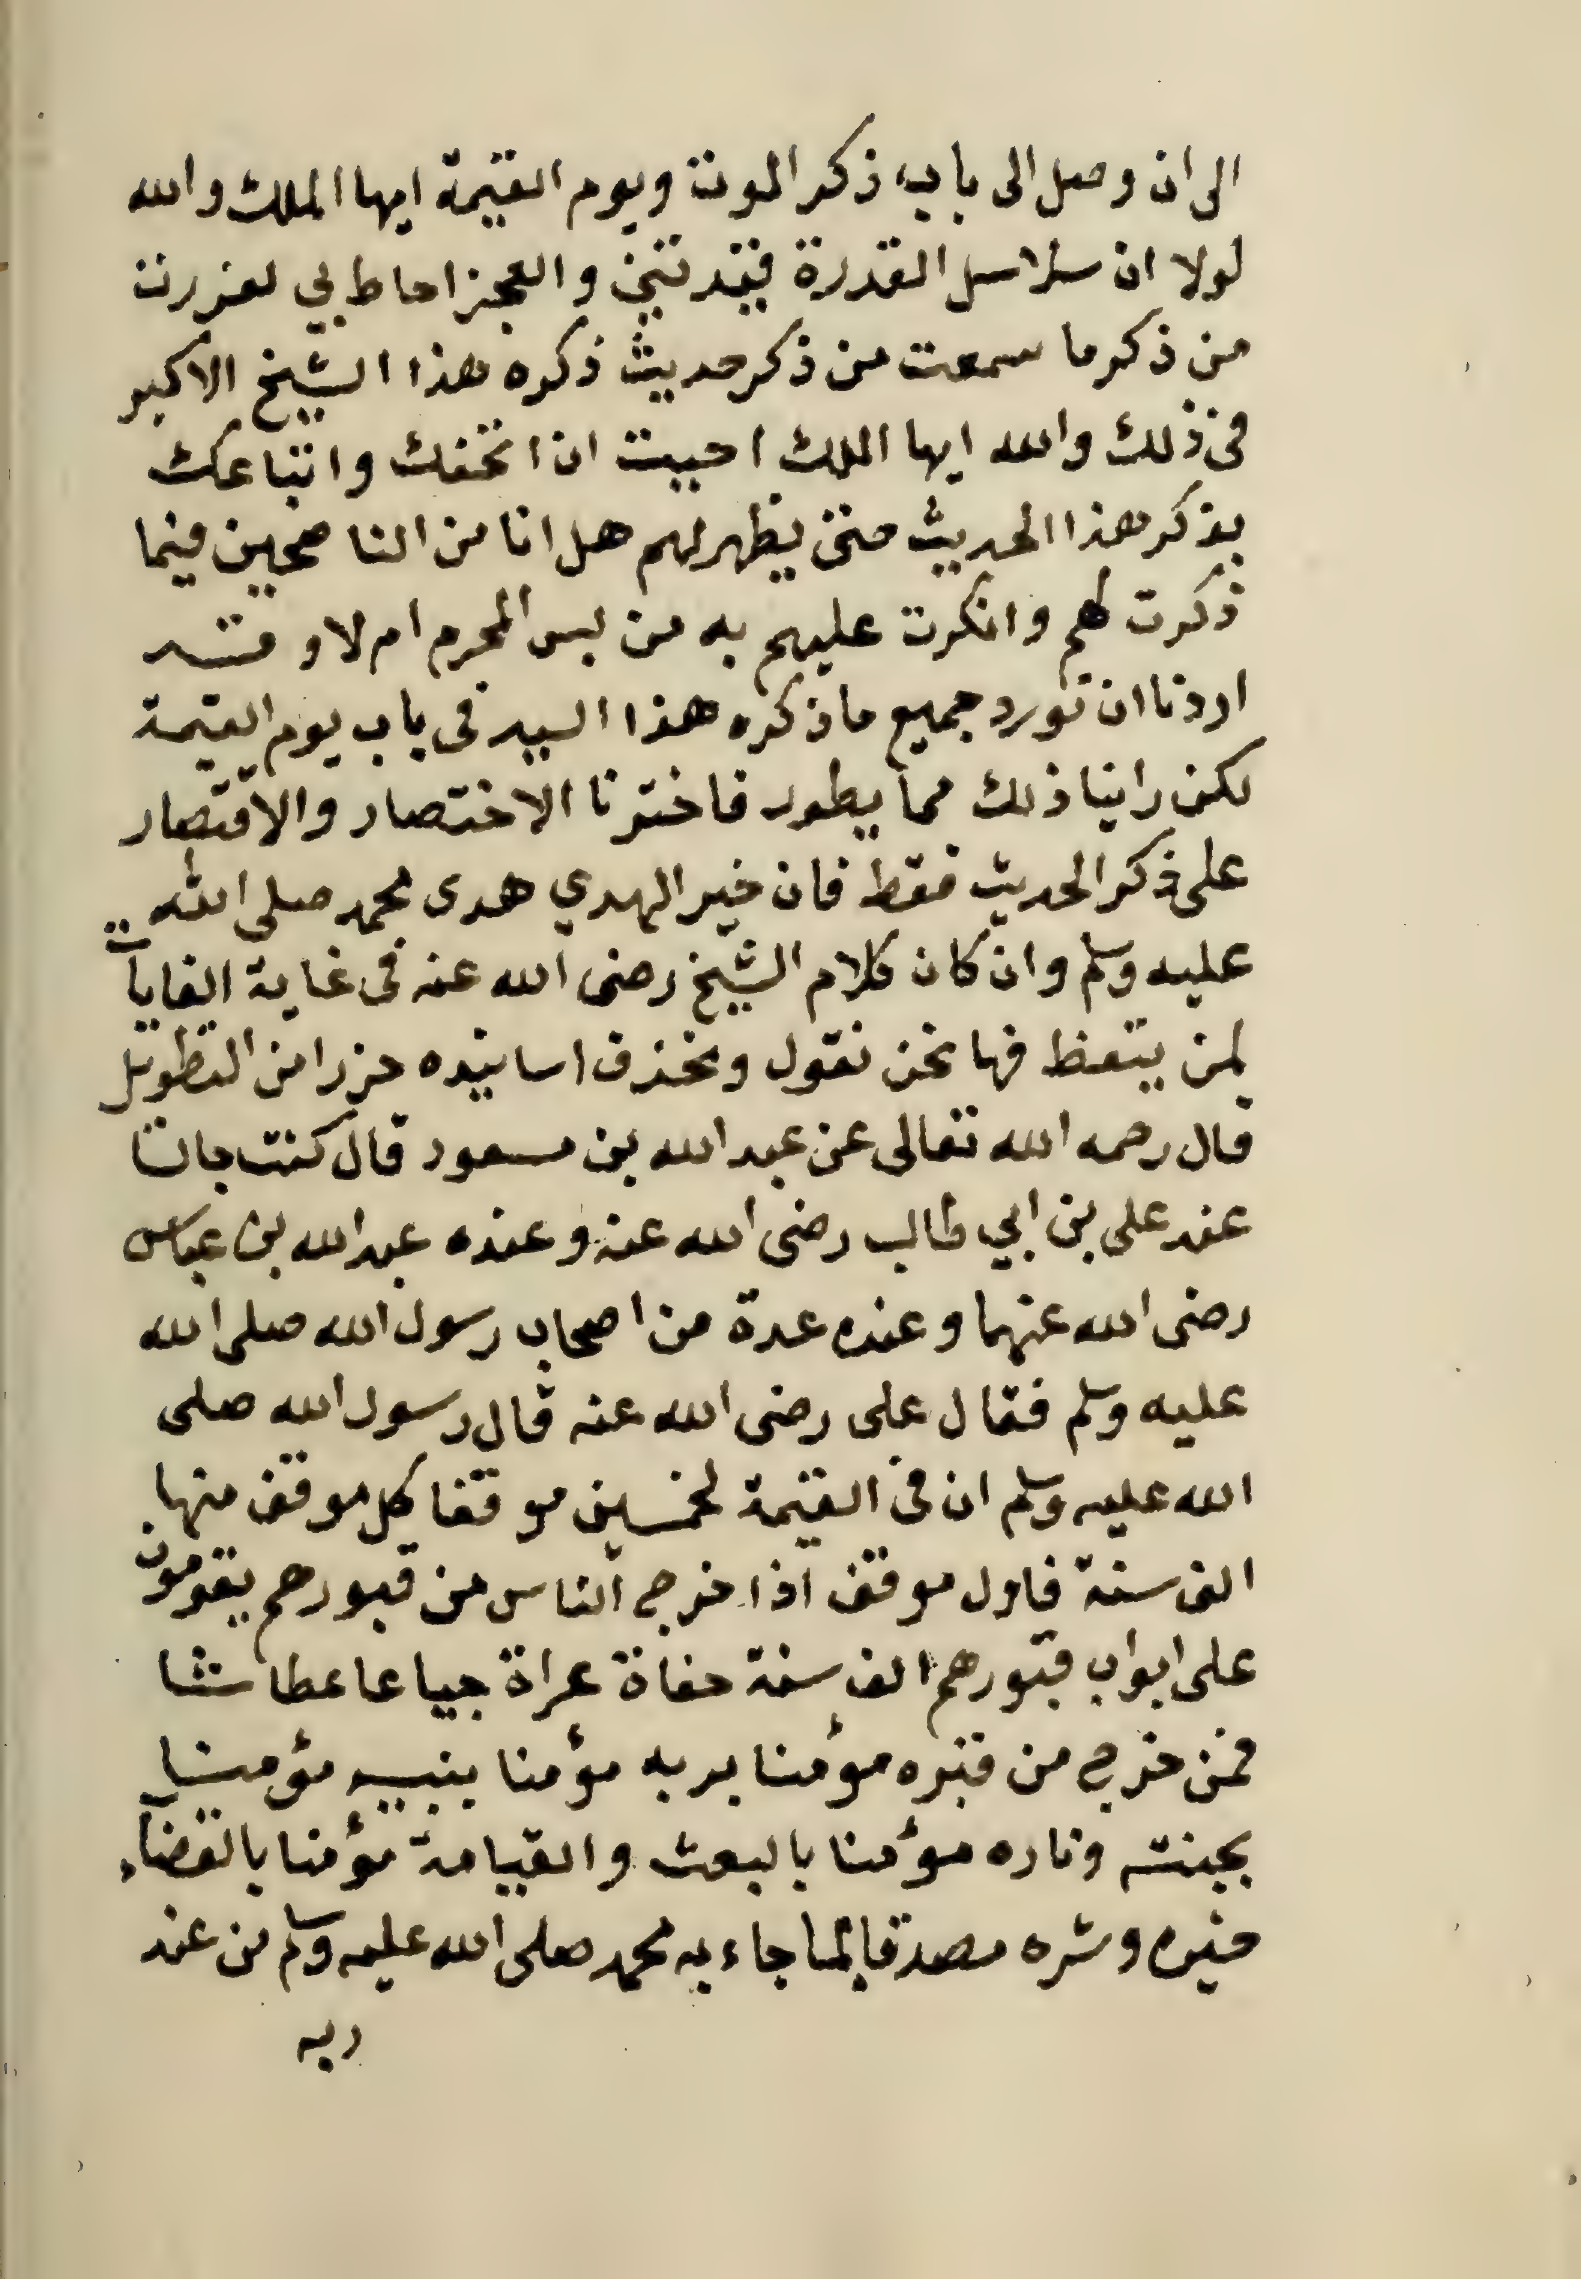 الى ان وصل الى باب ذكر الموت ويوم القيمة ايها الملك والله
لولا ان سلاسل القدرة قيدتني والعجز احاط بي لفررت
من ذكر ما سمعت من ذكر حديث ذكره هذا الشيخ الاكبر
في ذلك والله ايها الملك احببت ان اتحفك واتباعك
بذكر هذا الحديث حتى يظهر لهم هل انا من الناصحين فيما
ذكرت لهم وانكرت عليهم به من لبس المحرم ام لا وقد
اردنا ان نورد جميع ما ذكره هذا السيد في باب يوم القيمة
لكن راينا ذلك مما يطول فاخترنا الاختصار والاقتصار
على ذكر الحديث فقط فان خير الهدي هدى محمد صلى الله
عليه وسلم وان كان كلام الشيخ رضى الله عنه في غاية الغايات
لمن يتعظ فها نحن نقول ونحذف اسانيده حزرا من التطويل
قال رحمه الله تعالى عن عبد الله بن مسعود قال كنت جالسا
عند على بن ابي طالب رضى الله عنه وعنده عبد الله بن عباس
رضى الله عنهما وعنده عدة من اصحاب رسول الله صلى الله
عليه وسلم فقال على رضى الله عنه قال رسول الله صلى
الله عليه وسلم ان في القيمة لخمسين موقفا كل موقف منها
الف سنة فاول موقف اذا خرج الناس من قبورهم يقومون
على ابواب قبورهم الف سنة حفاة عراة جياعا عطاشا
فمن خرج من قبره مؤمنا بربه مؤمنا بنبيه مؤمنا
بجنته وناره مؤمنا بالبعث والقيامة مؤمنا بالقضاء
خيره وشره مصدقا بما جاء به محمد صلى الله عليه وسلم من عند
ربه